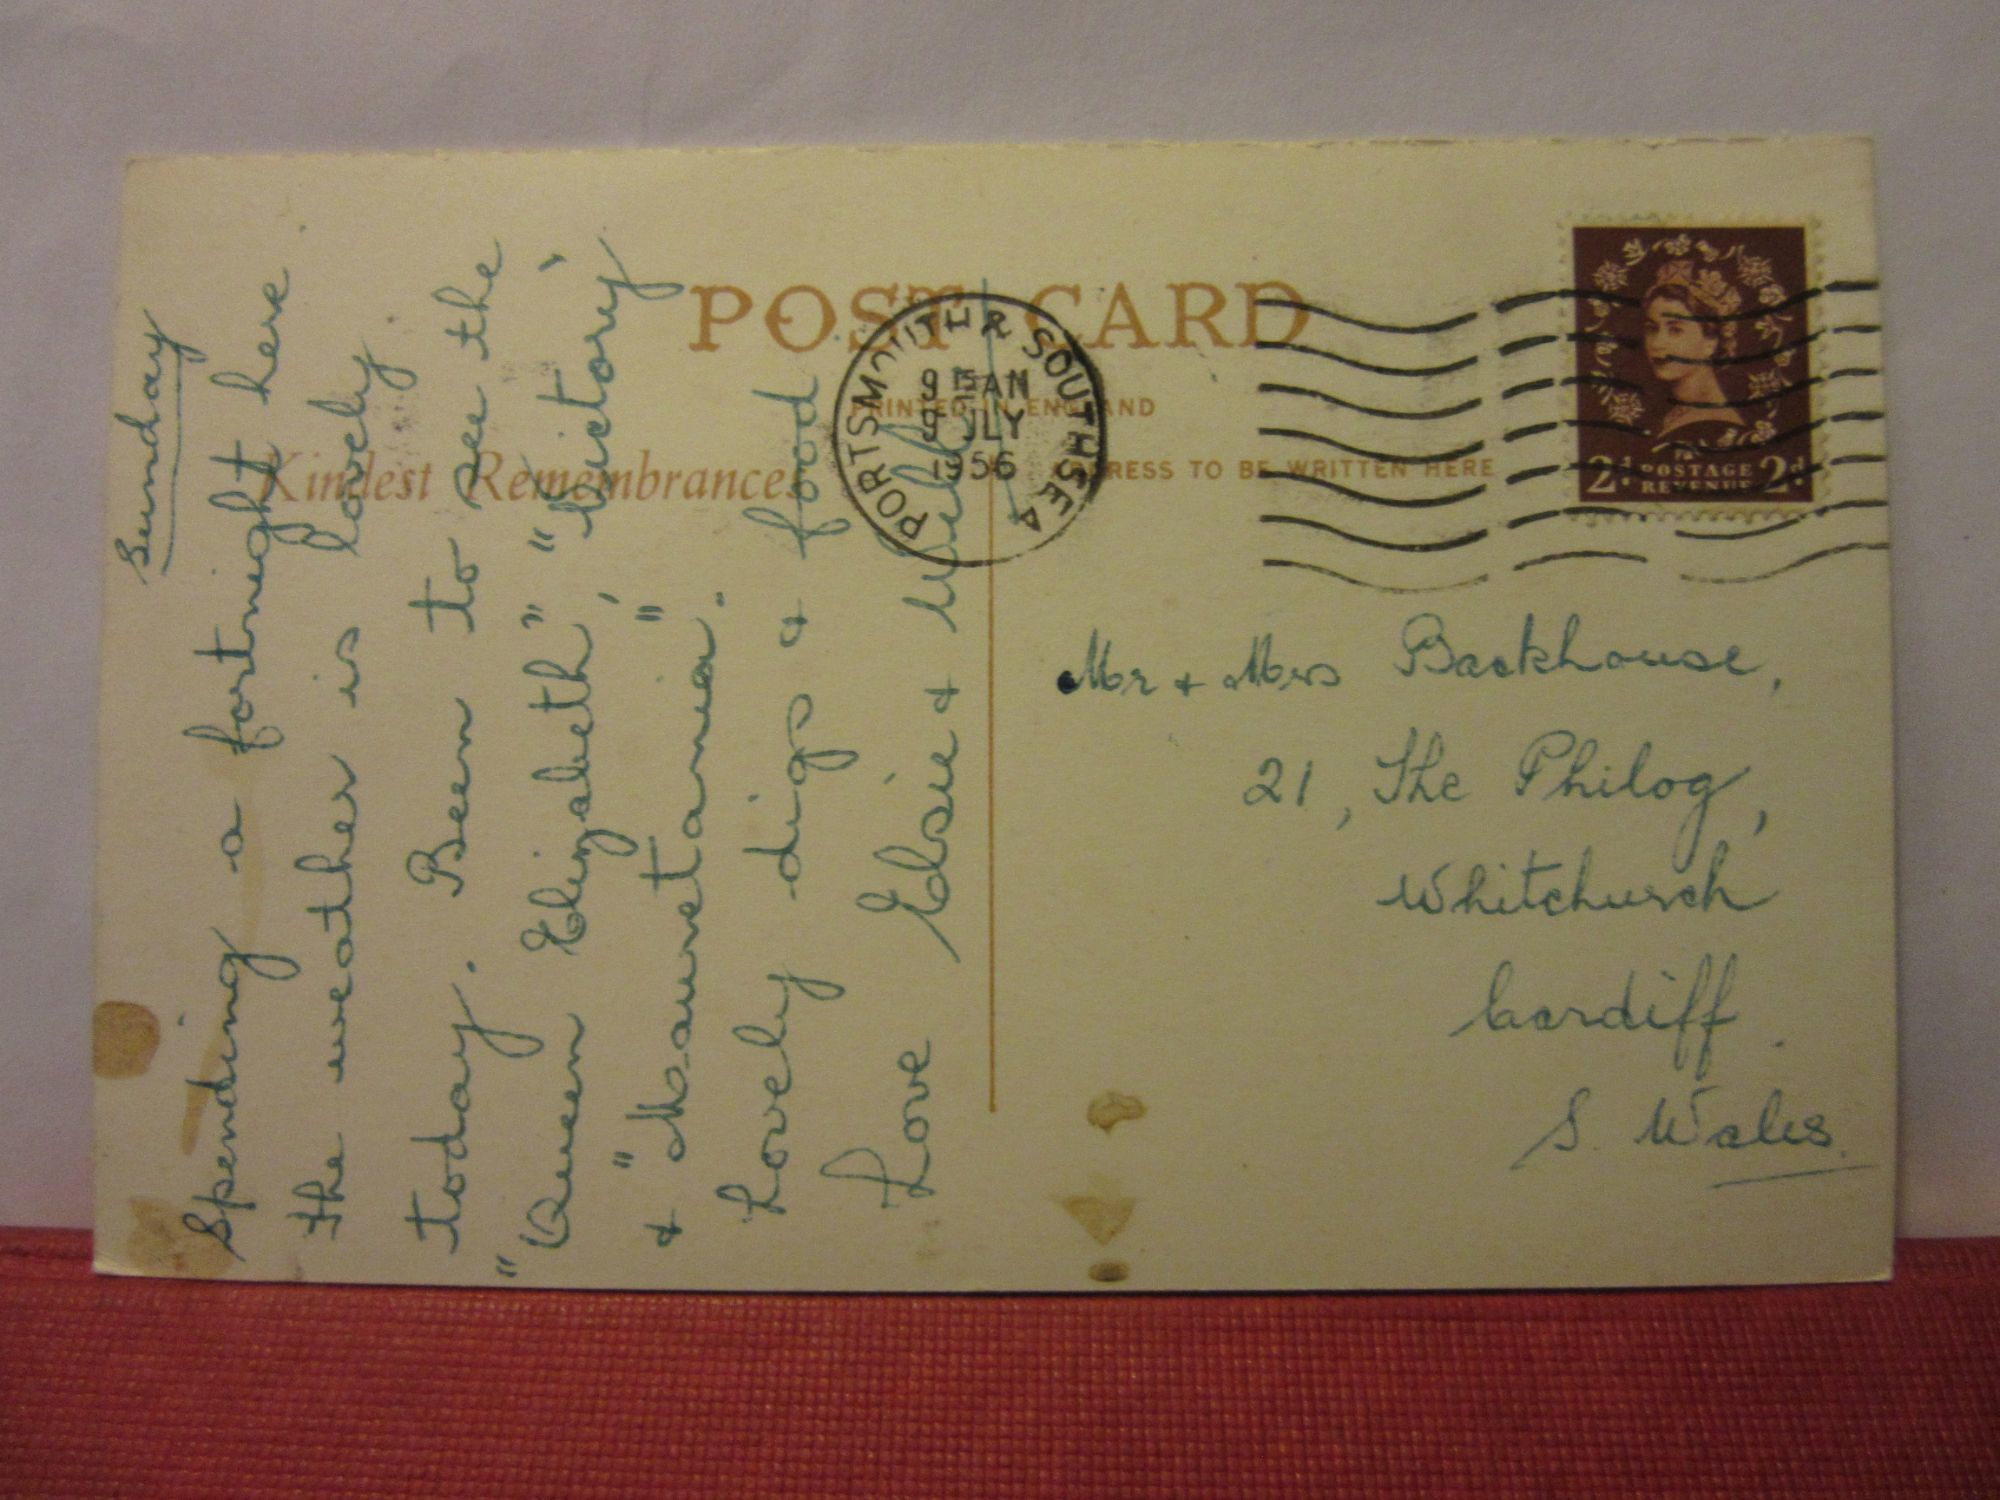 POST CARD
PRINTED IN ENGLAND
Kindest Remembrances
ADDRESS TO BE WRITTEN HERE
PORTSMOUTH & SOUTHSEA
9 15 AM
9 JLY
1956
2d POSTAGE 2d
REVENUE
Sunday
Spending a fortnight here.
The weather is lovely
today. Been to see the
"Queen Elizabeth", "Victory"
& "Mauretania".
Lovely digs & food
Love Elsie &
Mr & Mrs Backhouse,
21, The Philog,
Whitchurch
Cardiff.
S. Wales.